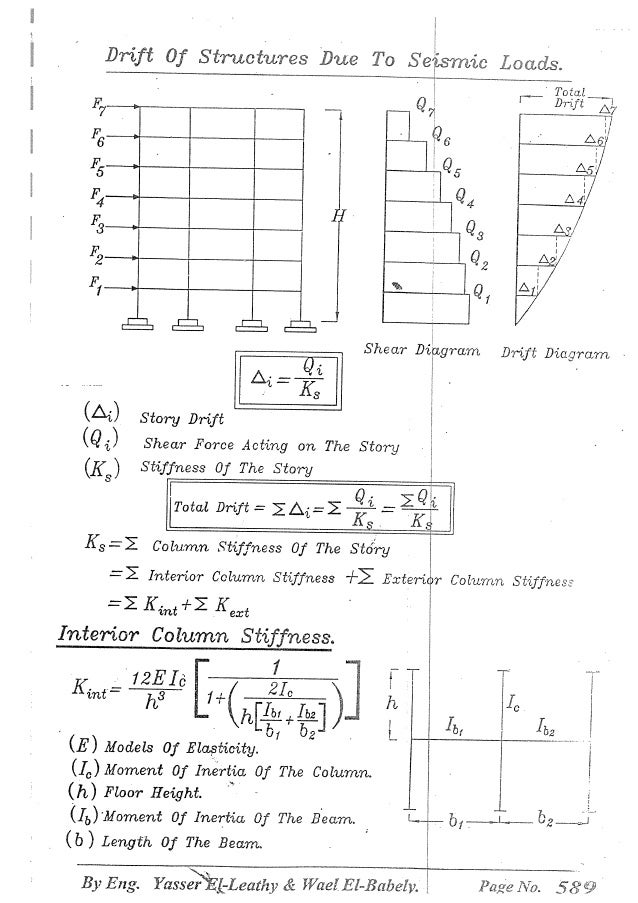 Drift Of Structures Due To Seismic Loads.
F7
F6
F5
F4
F3
F2
F1
H
Q7
Q6
Q5
Q4
Q3
Q2
Q1
Total
Drift
Δ7
Δ6
Δ5
Δ4
Δ3
Δ2
Δ1
Shear Diagram Drift Diagram
Δi = Qi / Ks
(Δi) Story Drift
(Qi) Shear Force Acting on The Story
(Ks) Stiffness Of The Story
Total Drift = ΣΔi = Σ Qi / Ks = ΣQi / Ks
Ks = Σ Column Stiffness Of The Story
= Σ Interior Column Stiffness + Σ Exterior Column Stiffness
= Σ Kint + Σ Kext
Interior Column Stiffness.
Kint = 12EIc / h³ [ 1 / 1+( 2Ic / h[ Ib1 / b1 + Ib2 / b2 ] ) ]
h
Ic
Ib1
Ib2
b1
b2
(E) Models Of Elasticity.
(Ic) Moment Of Inertia Of The Column.
(h) Floor Height.
(Ib) Moment Of Inertia Of The Beam.
(b) Length Of The Beam.
By Eng. Yasser El-Leathy & Wael El-Babely. Page No. 589